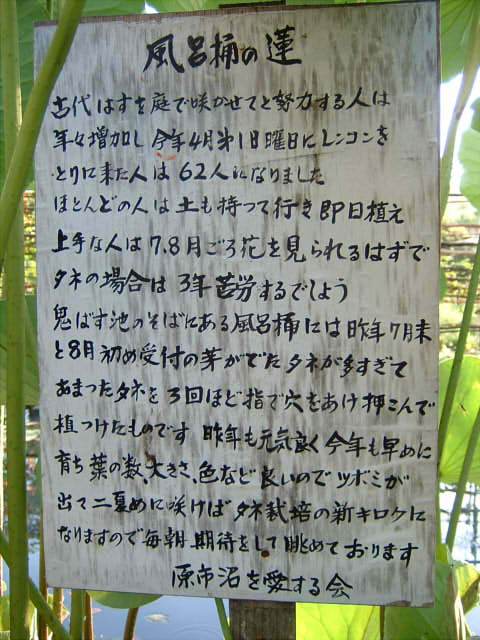 風呂桶の蓮
古代はすを庭で咲かせてと努力する人は
年々増加し今年4月第1日曜日にレンコンを
とりに来た人は62人になりました
ほとんどの人は土も持って行き即日植え
上手な人は7.8月ごろ花を見られるはずで
タネの場合は3年苦労するでしよう
鬼ばす池のそばにある風呂桶には昨年7月末
と8月初め受付の芽がでたタネが多すぎて
あまったタネを3回ほど指で穴をあけ押こんで
植つけたものです 昨年も元気良く今年も早めに
育ち葉の数、大きさ、色など良いのでツボミが
出て二夏めに咲けばタネ栽培の新キロクに
なりますので毎朝期待をして眺めております
原市沼を愛する会